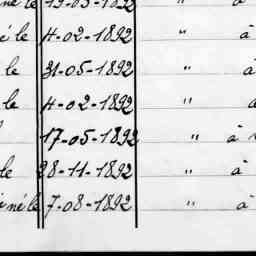 né le 19-03-1892 à
é le 4-02-1892 " à
le 31-05-1892 " à
le 4-02-1892 " a
17-05-1892 " à
le 28-11-1892 " à
né le 7-08-1892 " à